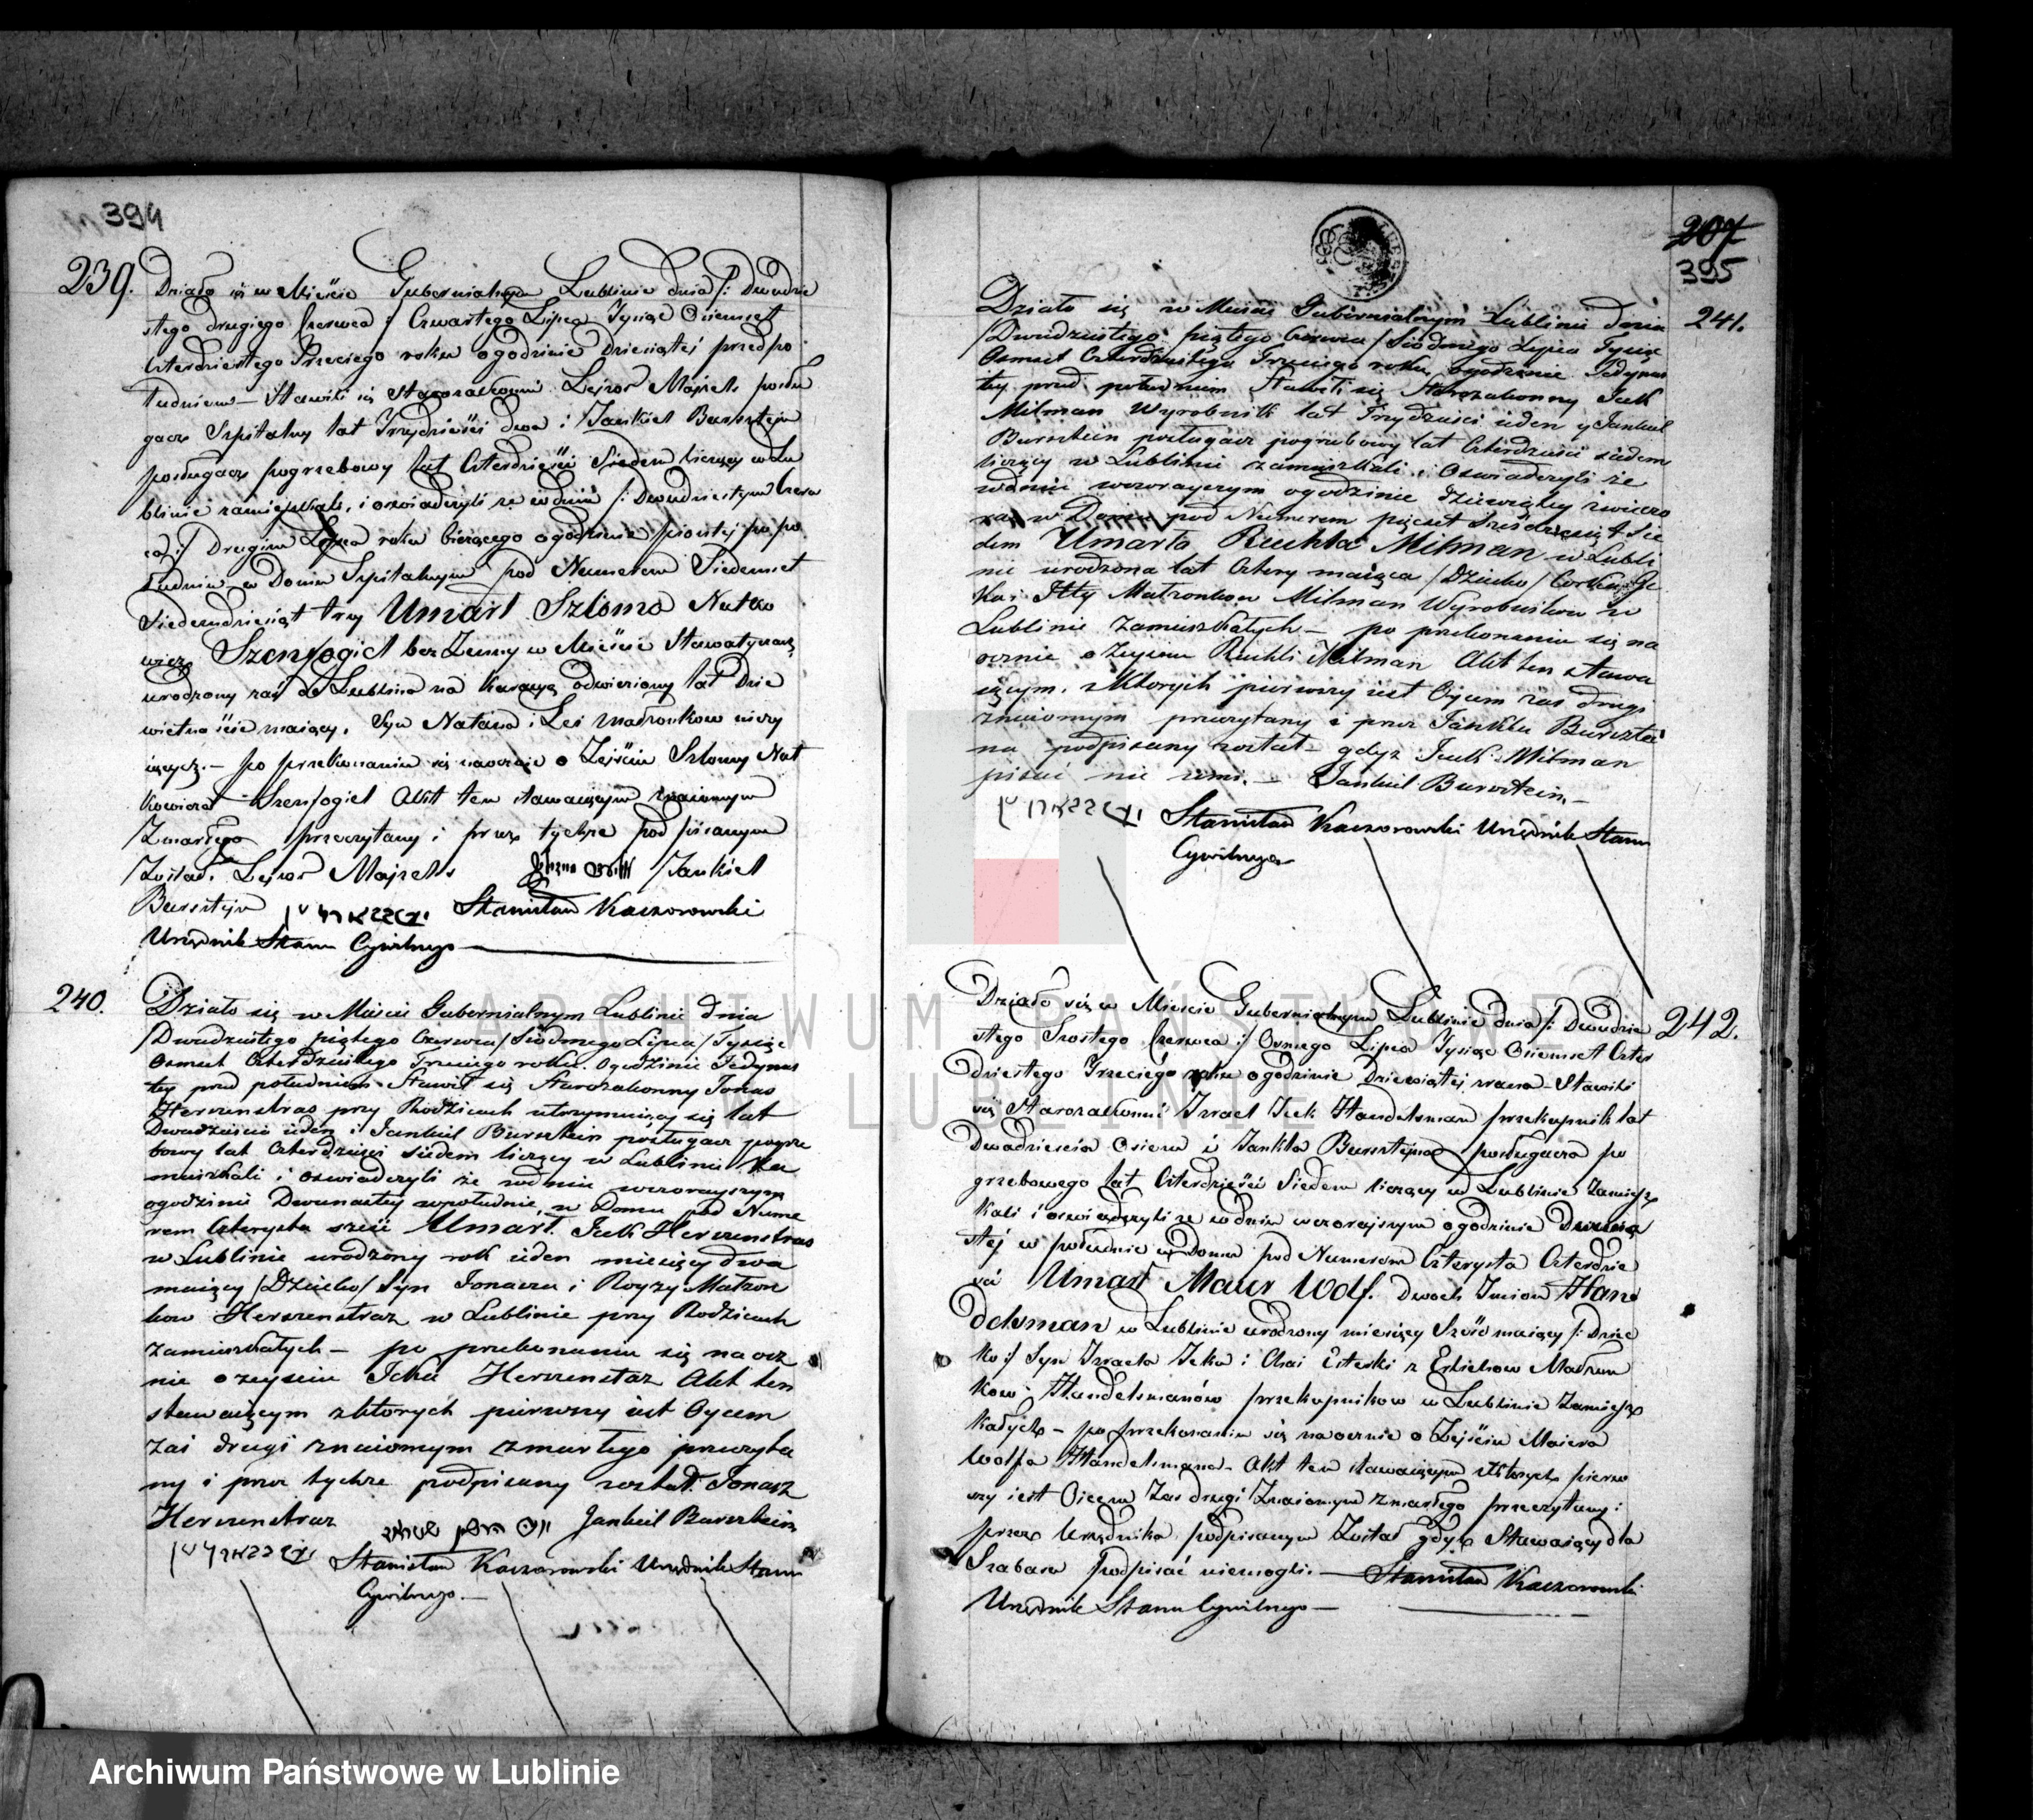 394
239. Działo się w Mieście Gubernialnym Lublinie dnia /: Dwudzie
stego drugiego Czerwca :/ Czwartego Lipca Tysiąc Ośmset
Czterdziestego Trzeciego roku o godzinie dziesiątej przed po
łudniem – Stawili się Starozakonni Lejzor Majzels posłu
gacz Szpitalny lat Trzydzieści dwa i Jankiel Bursztejn
posługacz pogrzebowy lat Czterdzieści Siedem liczący w Lu
blinie zamieszkali, i oświadczyli że w dniu /: Dwudziestym Czerw
ca :/ Drugim Lipca roku bieżącego o godzinie piątej po po
łudniu w Domu Szpitalnym pod Numerem Siedemset
Siedemdziesiąt trzy Umarł Szlomo Natko
wicz Szenfogiel bez Żenny w Mieście Sławatyczach
urodzony zaś do Lublina na Kuracyą odwieziony lat Dzie
więtnaście mający. Syn Natana i Lei małżonków nieży
iących. – po przekonaniu się naocznie o Zejściu Szlomy Nat
kowicza Szenfogiel Akt ten stawaiącym znaiomym
Zmarłego przeczytany i przez tychże podpisanym
Został. Lejzor Majzels Jankiel
Bursztejn Stanisław Kaczorowski
Urzędnik Stanu Cywilnego
240. Działo się w Mieście Gubernialnym Lublinie dnia
/Dwudziestego piątego Czerwca/ Siódmego Lipca/ Tysiąc
Osmset Czterdziestego Trzeciego roku. O godzinie Jedynas
tey przed południem Stawił się Starozakonny Jonas
Herszenstras przy Rodzicach utrzymuiący się lat
Dwadzieścia ieden i Jankiel Bursztein posługacz pogrze
bowy lat Czterdzieści siedem liczący w Lublinie Za
mieszkali i oświadczyli że w dniu wczorayszym
o godzinie Dwunastey w południe, w Domu pod Nume
rem Czterysta sześć Umarł Icek Herszenstras
w Lublinie urodzony rok ieden miesięcy dwa
maiący /Dziecko/ Syn Jonasza i Royzy Małżon
ków Herszenstraz w Lublinie przy Rodzicach
Zamieszkałych – po przekonaniu się naocz
nie o zeyściu Icka Herszenstaz Akt ten
stawaiącym z których pierwszy iest Oycem
zaś drugi znaiomym zmarłego przeczyta
ny i przez tychże podpisany został. Jonasz
Herszenstraz Jankiel Bursztein
Stanisław Kaczorowski Urzędnik Stanu
Cywilnego. –
207
395
241. Działo się w Mieście Gubernialnym Lublinie dnia
/Dwudziestego piątego Czerwca/ Siódmego Lipca Tysiąc
Osmset Czterdziestego Trzeciego roku, o godzinie Jedynas
tey przed południem Stawili się Starozakonny Icek
Milman Wyrobnik lat Trzydzieści ieden y Jankiel
Bursztein posługacz pogrzebowy lat Czterdzieści siedem
liczący w Lublinie zamieszkali i Oswiadczyli że
w dniu wczorayszym o godzinie dziewiątey z wieczo
ra w Domu pod Numerem pięćset Sześćdziesiąt Sie
dem Umarła Ruchla Milman w Lubli
nie urodzona lat Cztery maiąca /Dziecko/ Corka
Ity Małżonkow Milman Wyrobników w
Lublinie Zamieszkałych – po przekonaniu się na
ocznie o Zeyściu Ruchli Milman Akt ten stawa
iącym. z Których pierwszy iest Oycem zas drugi
znaiomym przeczytany i przez Jankla Burszteі
na podpisany został gdyż Icek Milman
pisać nie umie. – Jankiel Bursztein. –
Stanisław Kaczorowski Urzędnik Stanu
Cywilnego
242. Działo się w Mieście Gubernialnym Lublinie dnia /: Dwudzie
stego Szostego Czerwca :/ Osmego Lipca Tysiąc Ośiemset Czter
dziestego Trzeciego roku o godzinie Dziewiątej zrana – Stawili
się Starozakonni Izrael Icek Handelsman przekupnik lat
Dwadzieścia Osiem i Jankla Bursztejna posługacza po
grzebowego lat Czterdzieści Siedem liczący w Lublinie Zamiesz
kali i oswiadczyli że w dniu wczorajszym o godzinie Dwuna
stej w południe w Domu pod Numerem Czterysta Czterdzie
ści Umarł Maier Wolf. Dwoch Imion Han
delsman w Lublinie urodzony miesięcy Sześć maiący /: Dziec
ko :/ Syn Izraela Icka i Chai Esterki z Małżon
kow Handelsmanów przekupników w Lublinie Zamiesz
kałych – po przekonaniu się naocznie o Zejściu Maiera
Wolfa Handelsmana – Akt ten stawaiącym z Których pierw
szy iest Oicem Zas drugi Znaiomym zmarłego przeczytany i
przez Urzędnika podpisanym Został gdyż Stawaiący dla
Szabasu podpisać niemogli. – Stanisław Kaczorowski
Urzędnik Stanu Cywilnego –
ARCHIWUM PAŃSTWOWE
W LUBLINIE
Archiwum Państwowe w Lublinie